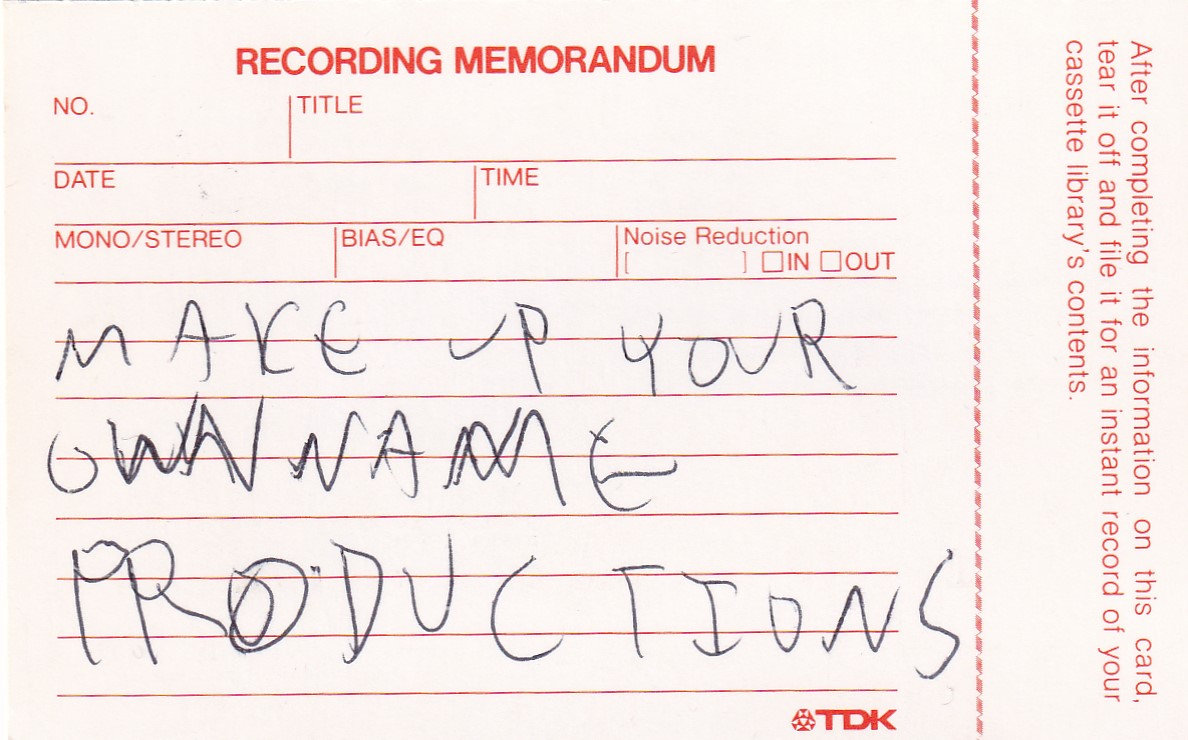 RECORDING MEMORANDUM
NO. TITLE
DATE TIME
MONO/STEREO BIAS/EQ Noise Reduction
[ ] □IN □OUT
MAKE UP YOUR
OWN NAME
PRODUCTIONS
TDK
After completing the information on this card,
tear it off and file it for an instant record of your
cassette library's contents.